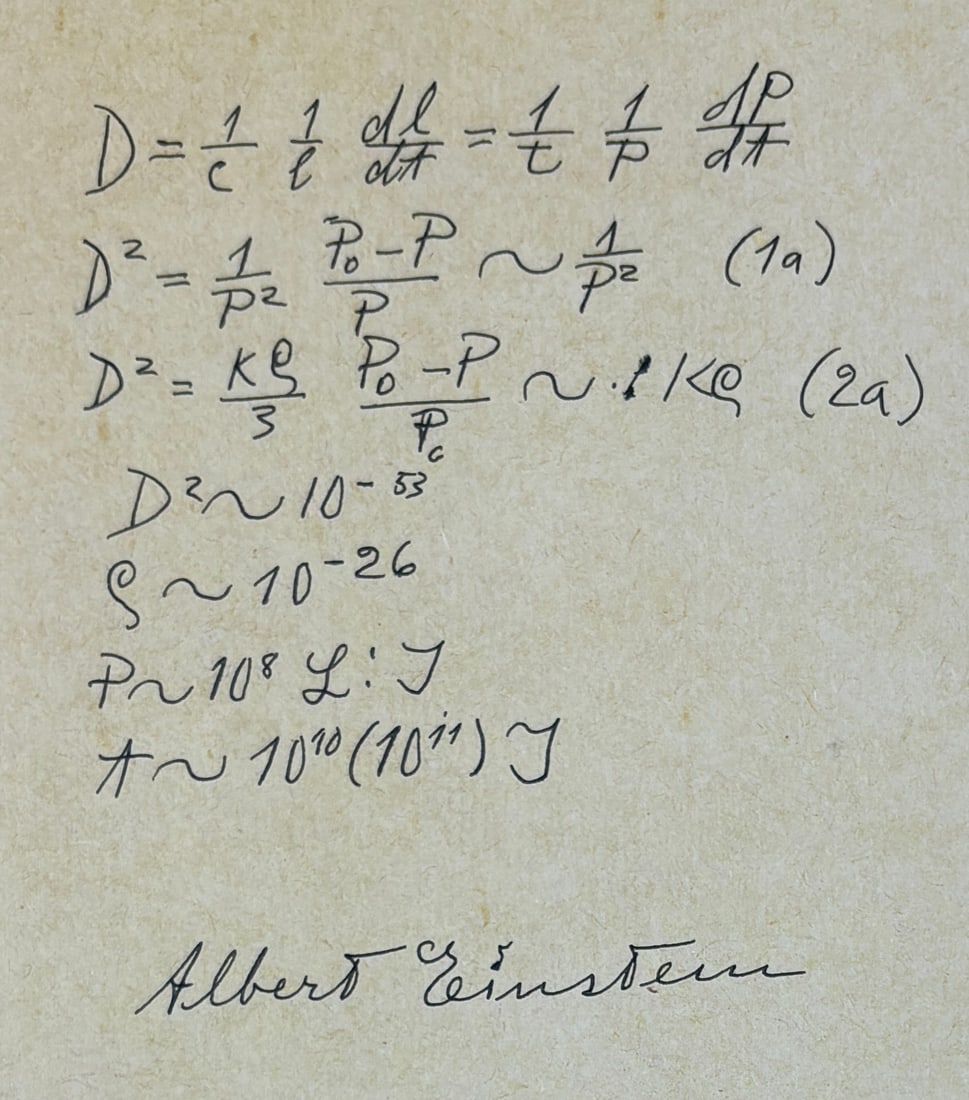 D = 1/c 1/l dl/dt = 1/t 1/P dP/dt
D² = 1/P² P₀-P/P ~ 1/P² (1a)
D² = Kρ/3 P₀-P/P₀ ~ Kρ (2a)
D² ~ 10⁻⁵³
ρ ~ 10⁻²⁶
P ~ 10⁸ L:J
t ~ 10¹⁰(10¹¹) J
Albert Einstein